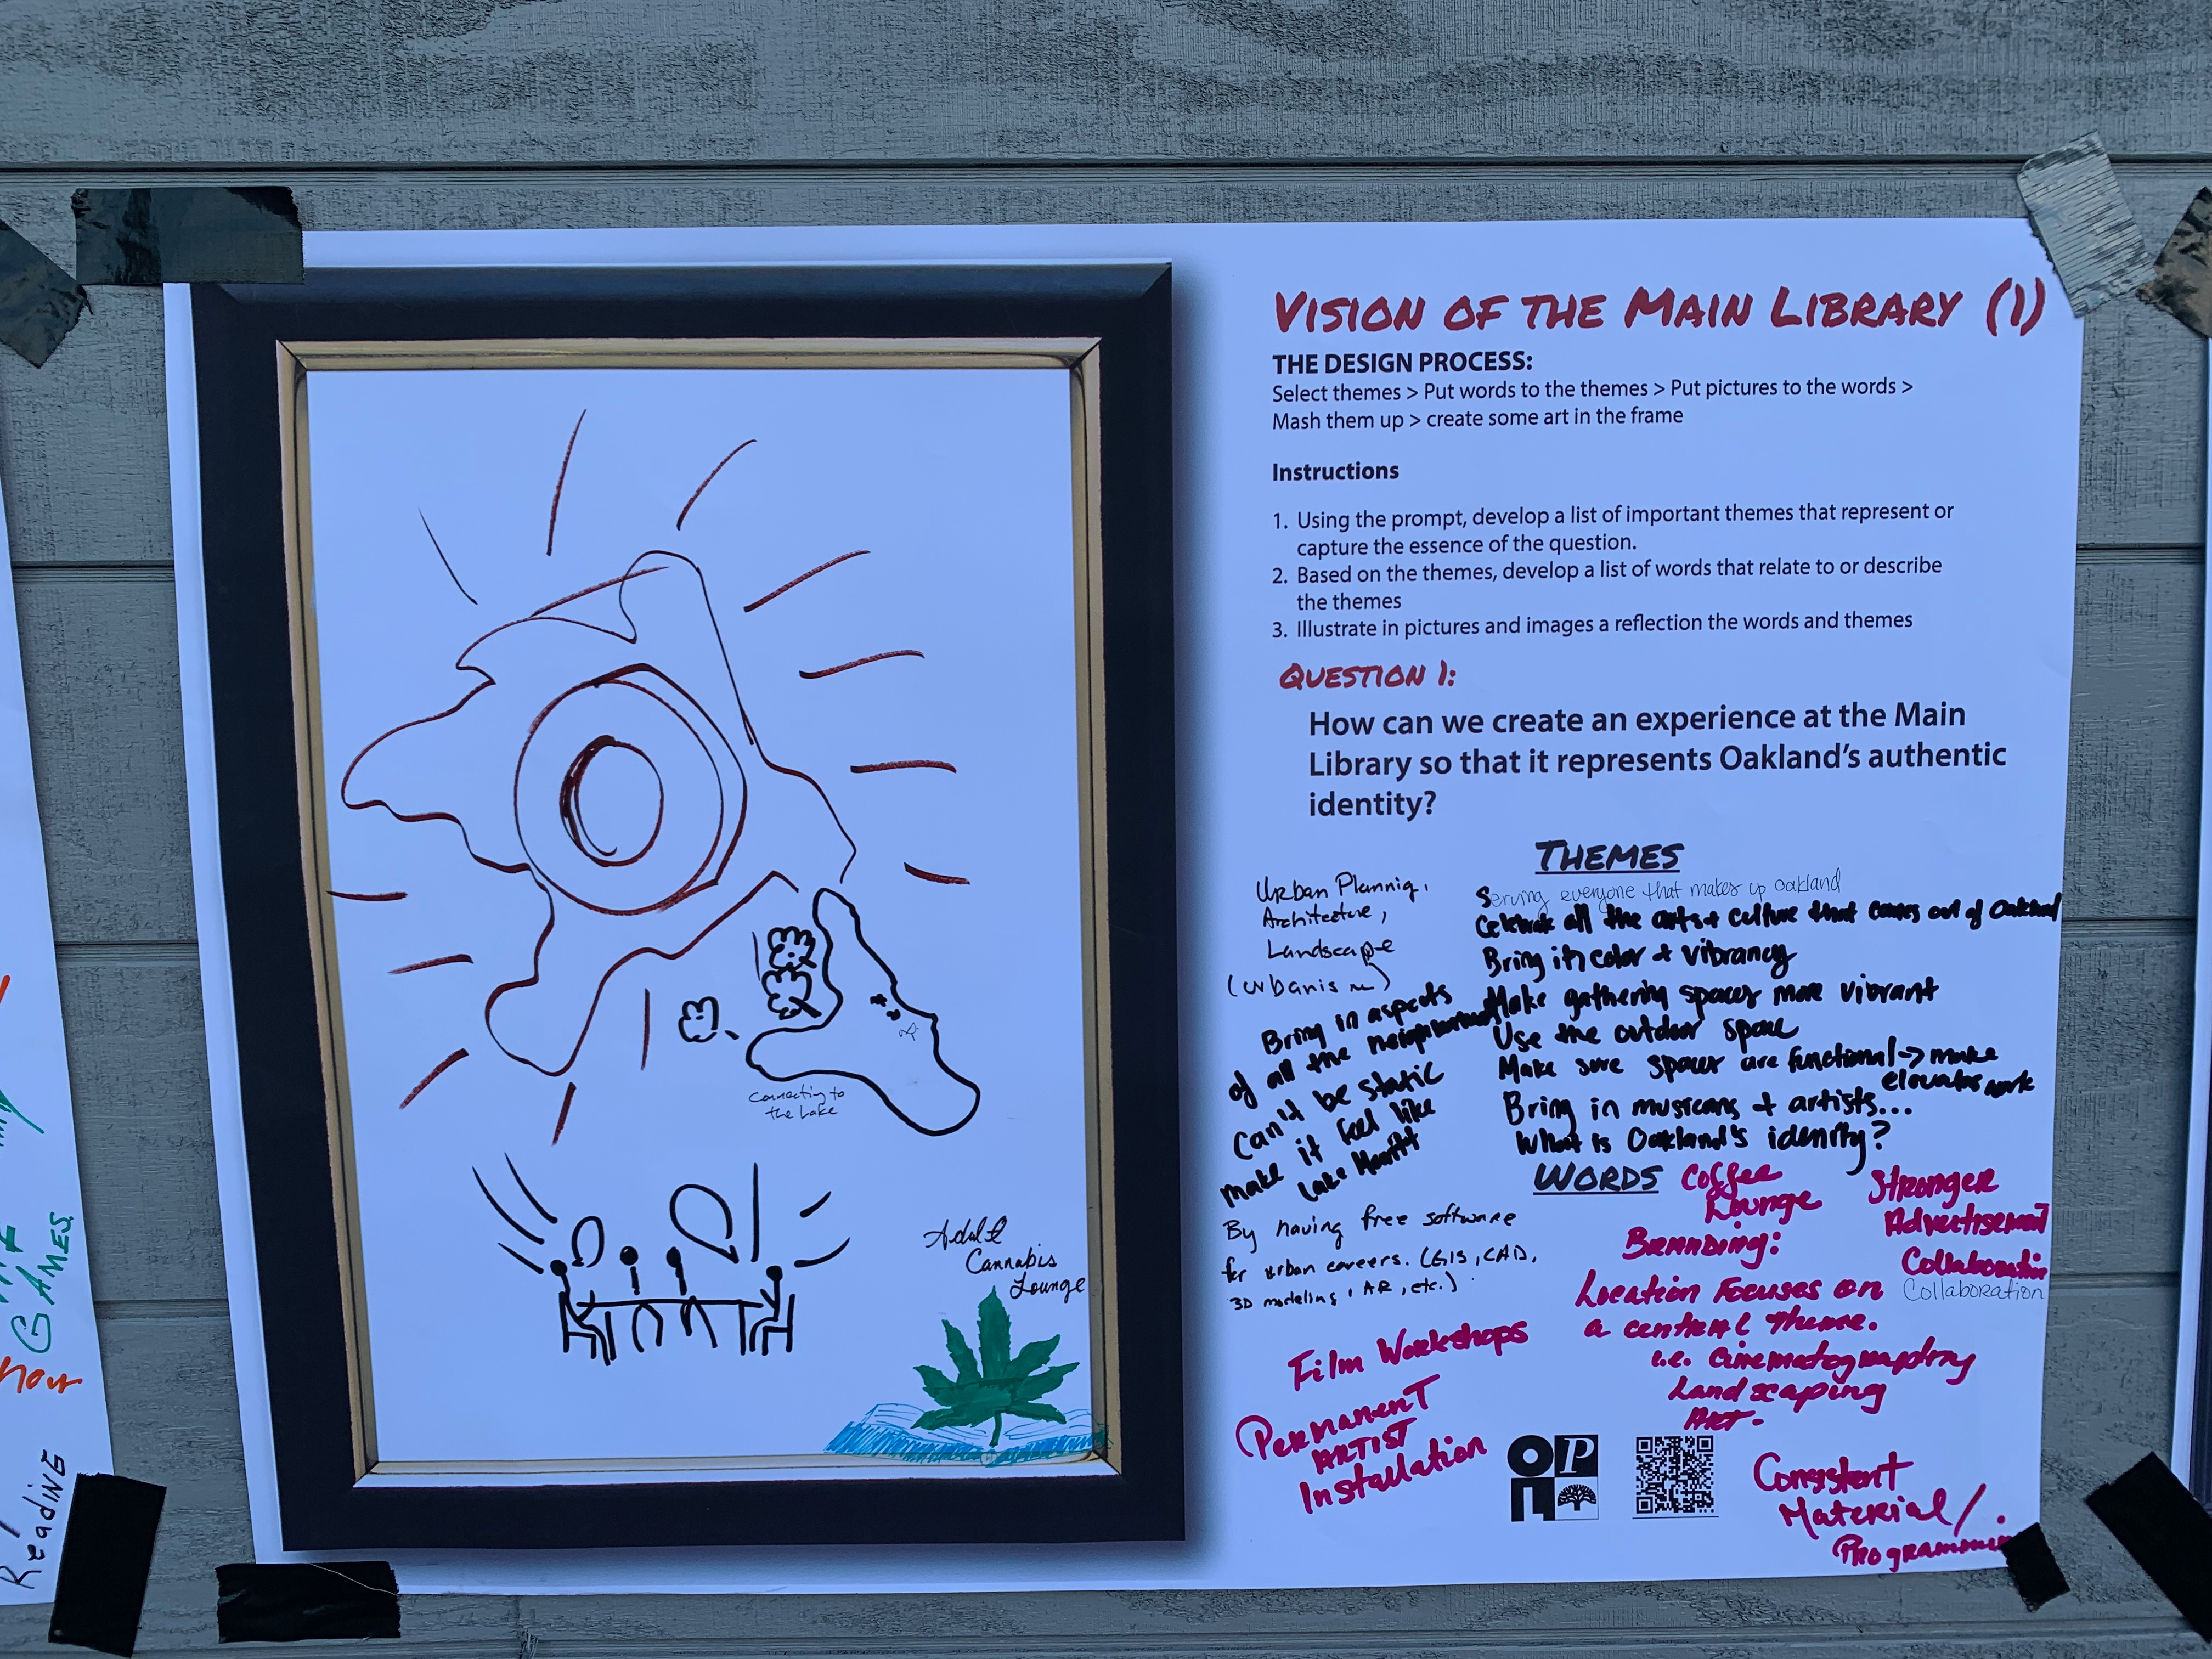 VISION OF THE MAIN LIBRARY (1)
THE DESIGN PROCESS:
Select themes > Put words to the themes > Put pictures to the words >
Mash them up > create some art in the frame
Instructions
1. Using the prompt, develop a list of important themes that represent or
capture the essence of the question.
2. Based on the themes, develop a list of words that relate to or describe
the themes
3. Illustrate in pictures and images a reflection the words and themes
QUESTION 1:
How can we create an experience at the Main
Library so that it represents Oakland's authentic
identity?
THEMES
Urban Plannig,
Architecture,
Landscape
(urbanism)
Bring in aspects
of all the neighborhoods
Can't be static
make it feel like
Lake Merritt
Serving everyone that makes up oakland
Celebrate all the arts + culture that comes out of Oakland
Bring in color + vibrancy
Make gathering spaces more vibrant
Use the outdoor space
Make sure spaces are functional -> make
elevator work
Bring in musicans + artists...
What is Oakland's identity?
WORDS
By having free software
for urban careers. (GIS, CAD,
3D modeling, AR, etc.)
Coffee
Lounge
Stronger
Advertisement
Collaboration
Collaboration
Branding:
Location Focuses on
a central theme.
i.e. Cinematography
Landscaping
Art.
Film Workshops
Permanent
Artist
Installation
Consistent
Material/
Programmin
OPL
connecting to
the lake
Adult
Cannabis
Lounge
GAMES
now
Reading